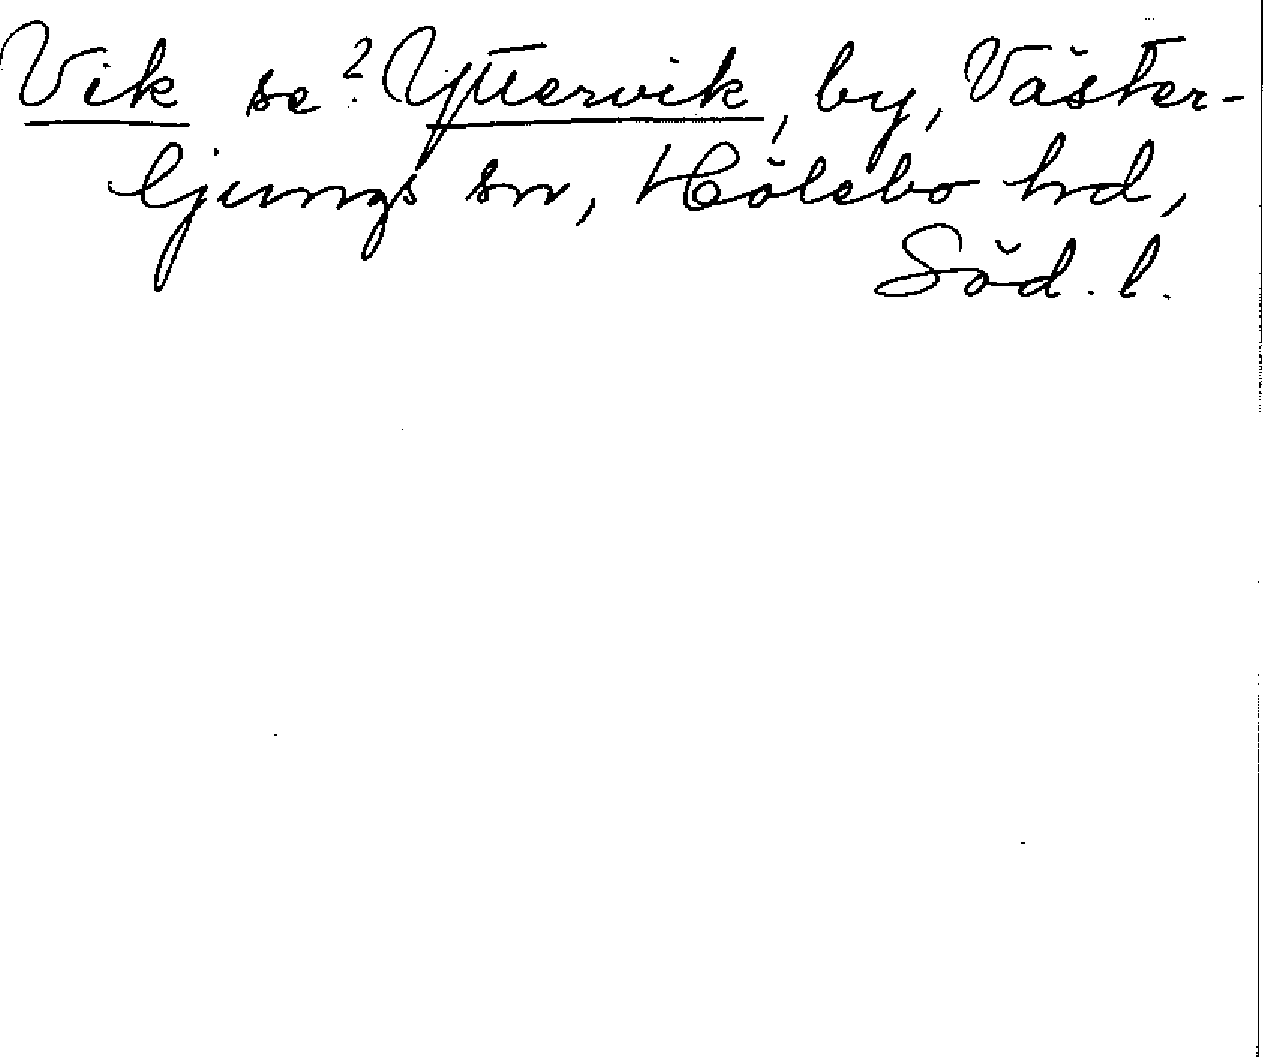 Vik se ? Yttervik, by, Väster-
ljungs sn, Hölebo hd,
Söd. l.